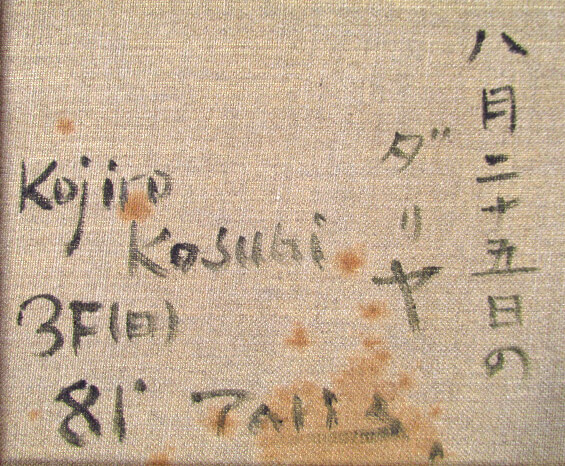 八月二十五日の
ダリヤ
Kojiro
Kosugi
3F(日)
81' Paris